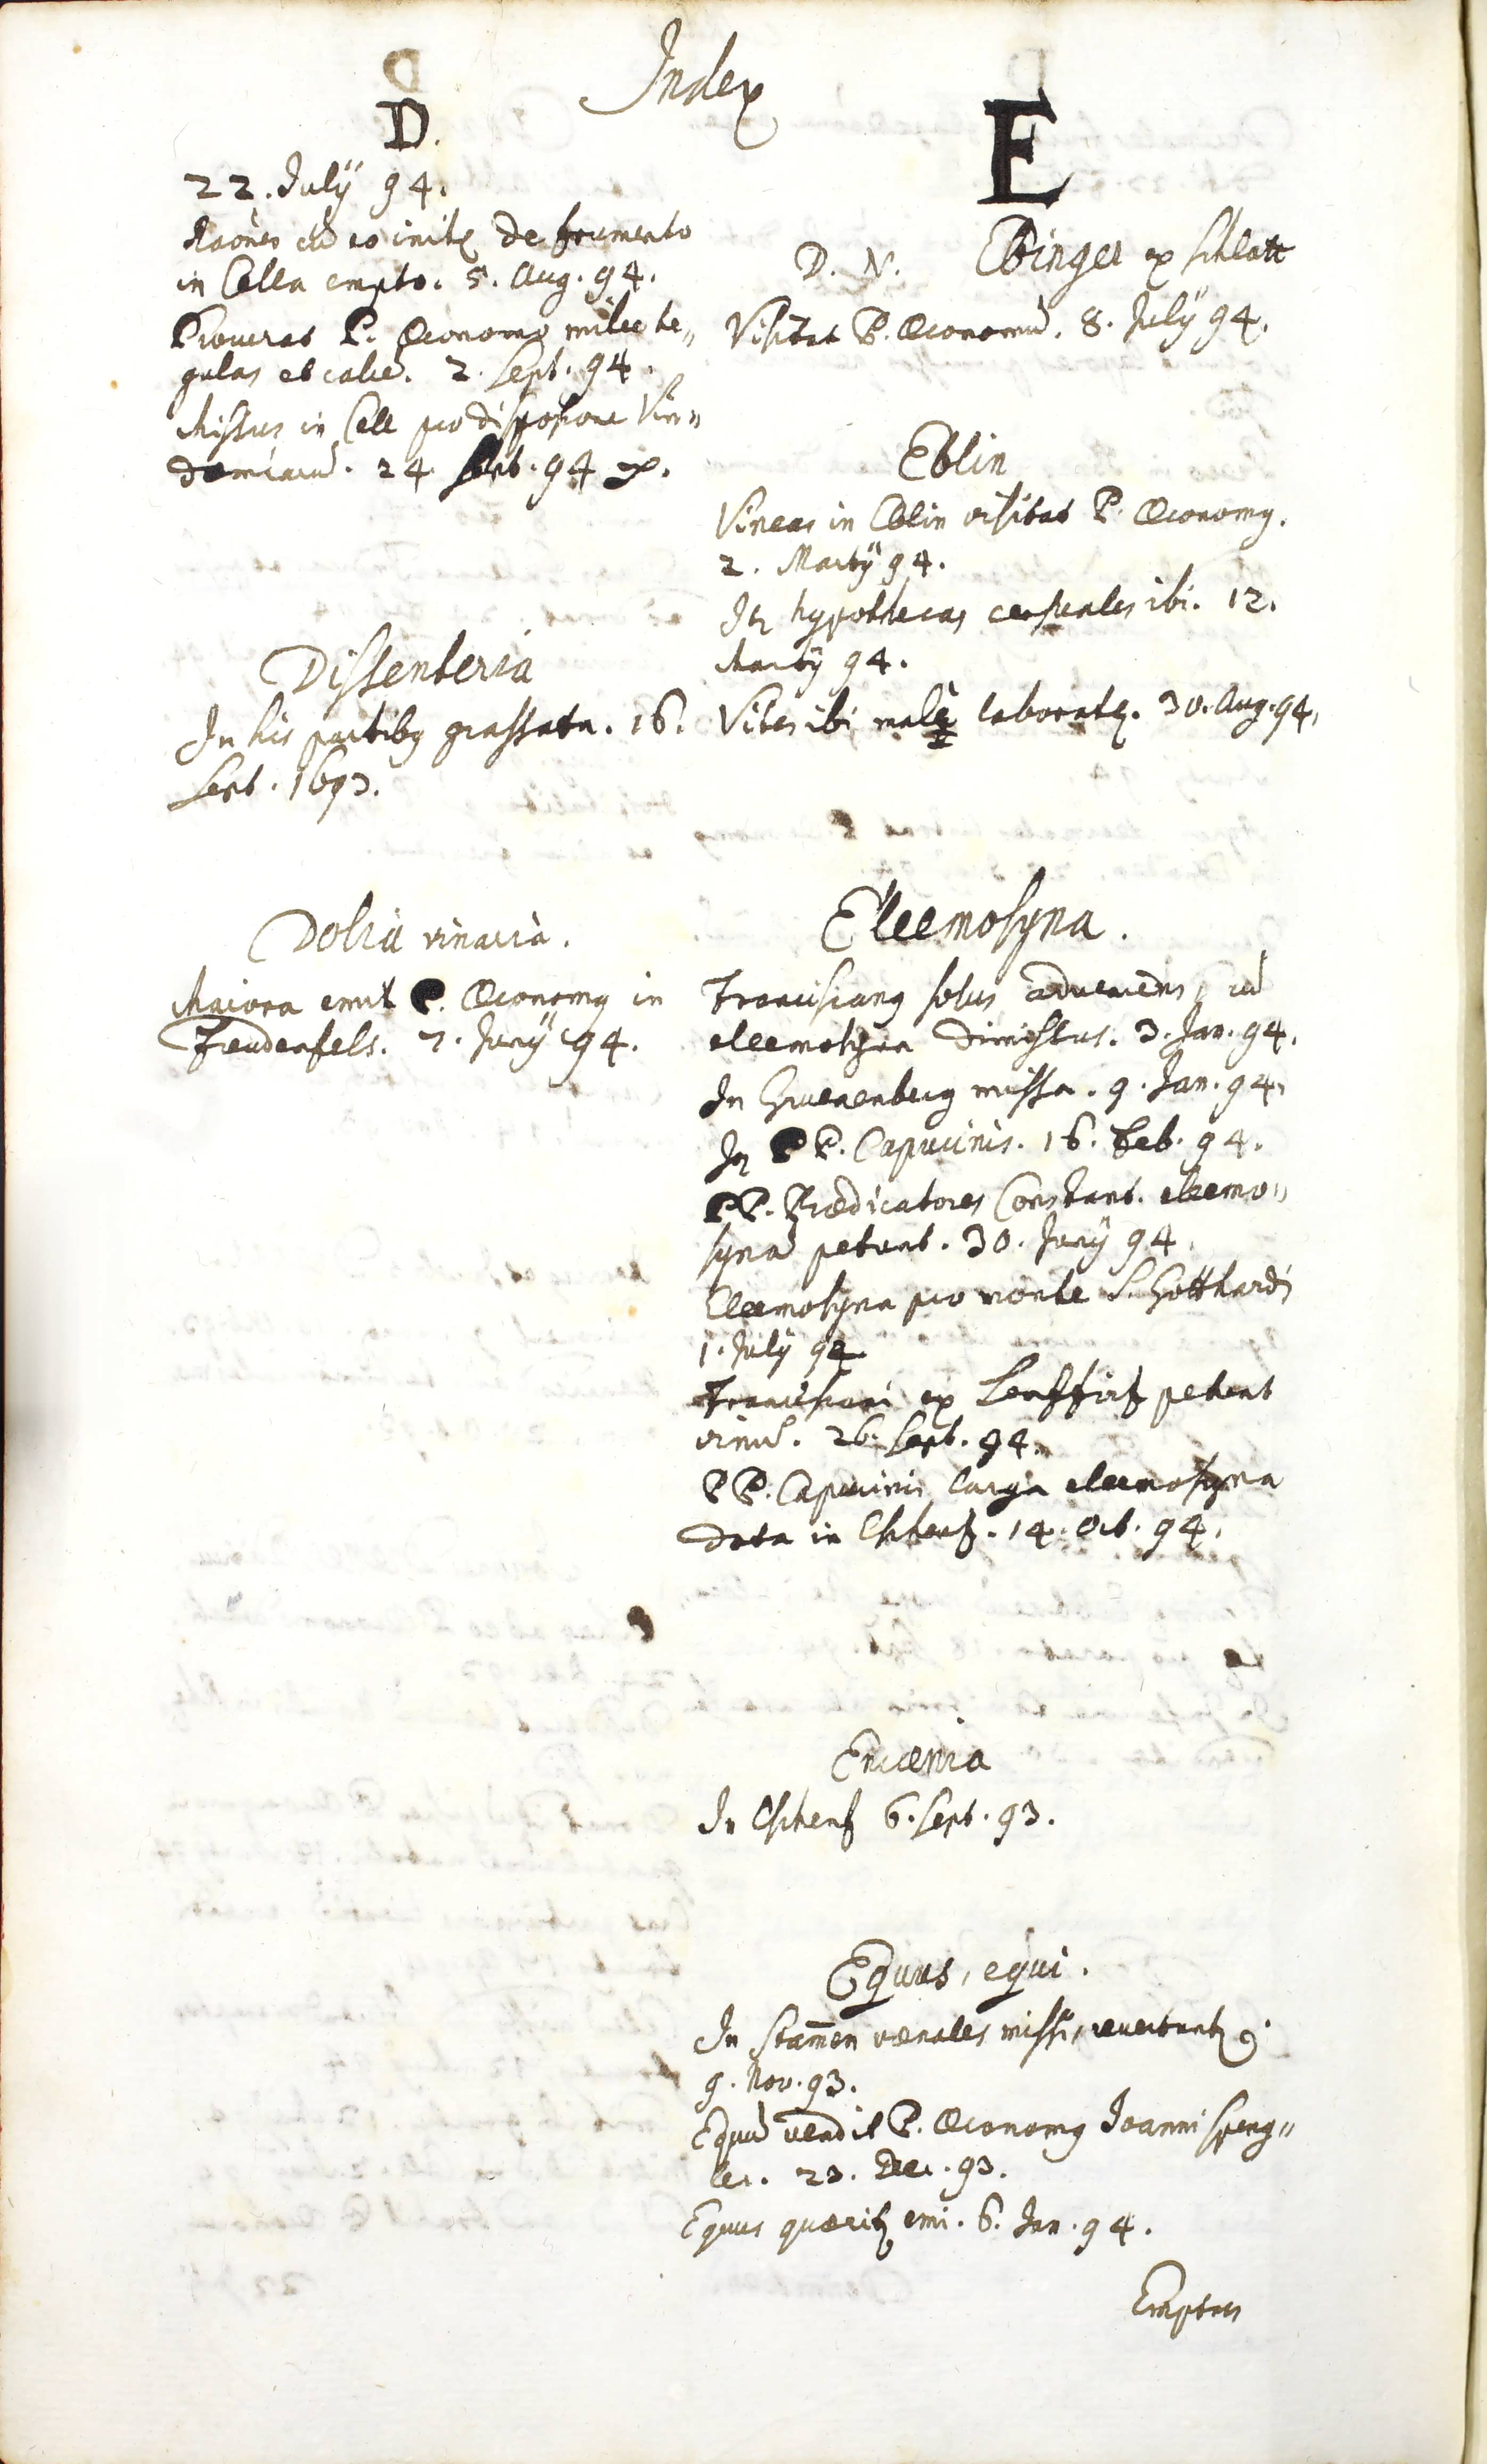 Index
D.
22. July 94.
Raōnes cū eo initę de frumento
in Cella empto. 5. Aug. 94.
Procurat P. Oeconomo mille te„
gulas et calcē. 2. Sept. 94.
Missus in Cell pro dispositione Vin„
demiarū. 24 Sept. 94
Dissenteria
In his partibꝯ grassata. 16.
Sept. 1693.
Dolia vinaria.
Maiora emit P. Oeconomꝯ in
Freudenfels. 7. Juny 94.
E
D. N. Ebinger ex Schlatt
Visitat P. Oeconomū. 8. July 94.
Eblin
Vineas in Eblin visitat P. Oeconomꝯ.
2. Marty 94.
It hypothecas censuales ibi. 12.
Marty 94.
Vites ibi malè laboratę. 30. Aug. 94.
Eleemosyna.
Franciscanꝯ solus adveniens, cū
eleemosyna dimissus. 3. Jan. 94.
In Gruenenberg missa. 9. Jan. 94.
It PP. Capucinis. 16. Feb. 94.
PP. Prædicatores Constant. eleemo„
synā petunt. 30. Juny 94.
Eleemosyna pro monte S. Gotthardi
1. July 94.
Franciscani ex petunt
vinū. 26. Sept. 94.
PP. Capucinis larga eleemosyna
data in Eschenz. 14. Oct. 94.
Encænia
In Eschenz 6. Sept. 93.
Equus, equi.
In Stam̄en venales missi, revertuntꝛ
9. Nov. 93.
Equū vendit P. Oeconomꝯ Joanni Speng„
ler. 23. Dec. 93.
Equus quæritꝛ emi. 6. Jan. 94.
Emptus